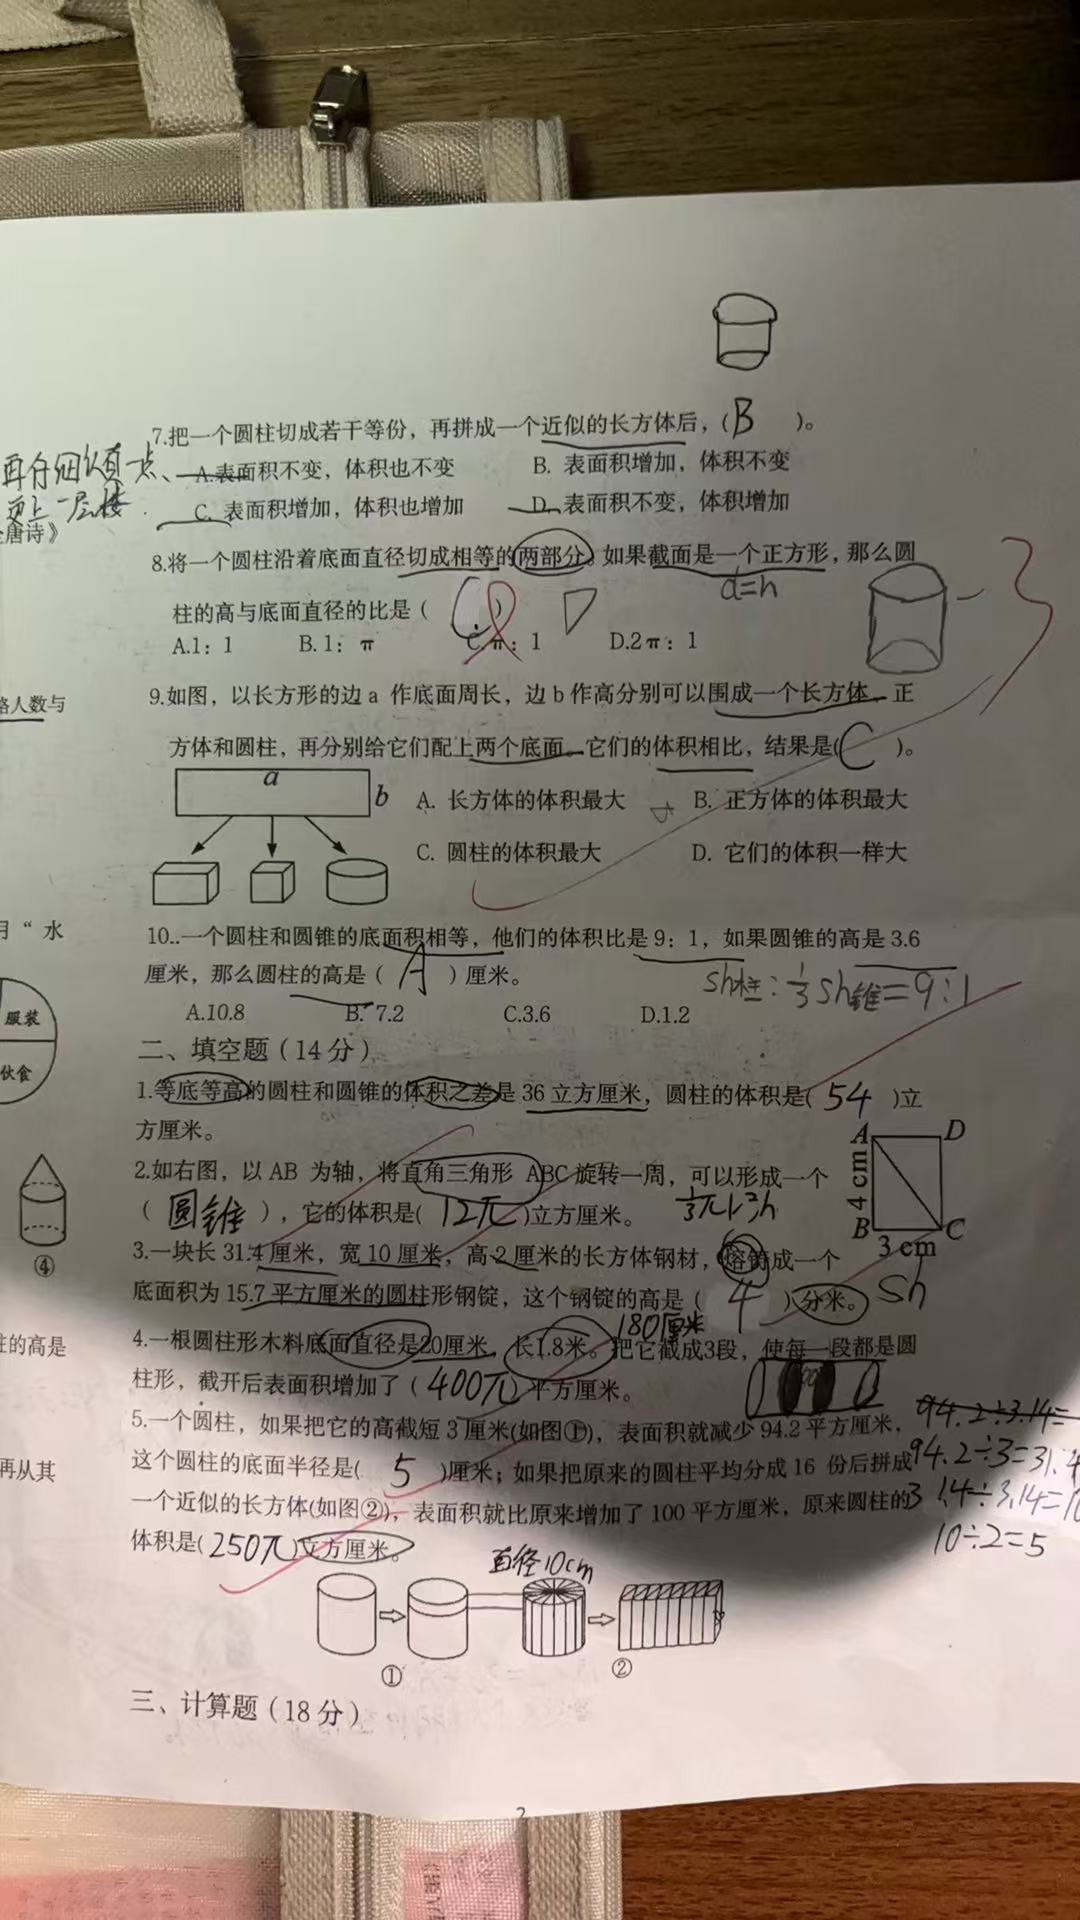 7.把一个圆柱切成若干等份，再拼成一个近似的长方体后，( B )。
再仔细认真一点、
A.表面积不变，体积也不变 B. 表面积增加，体积不变
更上一层楼.
唐诗》
C. 表面积增加，体积也增加 D. 表面积不变，体积增加
8.将一个圆柱沿着底面直径切成相等的两部分。如果截面是一个正方形，那么圆
d=h
-3
柱的高与底面直径的比是（ C ）
A.1：1 B. 1：π C.π：1 D.2π：1
络人数与
9.如图，以长方形的边 a 作底面周长，边 b 作高分别可以围成一个长方体、正
方体和圆柱，再分别给它们配上两个底面。它们的体积相比，结果是( C )。
a
b
A. 长方体的体积最大 B. 正方体的体积最大
C. 圆柱的体积最大 D. 它们的体积一样大
月“水
10..一个圆柱和圆锥的底面积相等，他们的体积比是 9：1，如果圆锥的高是 3.6
厘米，那么圆柱的高是（ A ）厘米。
Sh柱：1/3Sh锥=9:1
A.10.8 B. 7.2 C.3.6 D.1.2
服装
伙食
二、填空题（14 分）
1.等底等高的圆柱和圆锥的体积之差是 36 立方厘米，圆柱的体积是( 54 )立
方厘米。
2.如右图，以 AB 为轴，将直角三角形 ABC 旋转一周，可以形成一个
（ 圆锥 ），它的体积是( 12π )立方厘米。
1/3πr²h
A D
4 cm
B C
3 cm
④
3.一块长 31.4 厘米，宽 10 厘米，高 2 厘米的长方体钢材，熔铸成一个
底面积为 15.7 平方厘米的圆柱形钢锭，这个钢锭的高是（ 4 ）分米。
Sh
柱的高是
4.一根圆柱形木料底面直径是20厘米，长1.8米。把它截成3段，使每一段都是圆
180厘米
柱形，截开后表面积增加了（ 400π ）平方厘米。
5.一个圆柱，如果把它的高截短 3 厘米(如图①)，表面积就减少 94.2 平方厘米，
94.2÷3.14=
再从其
这个圆柱的底面半径是( 5 )厘米；如果把原来的圆柱平均分成 16 份后拼成
94.2÷3=31.4
一个近似的长方体(如图②)，表面积就比原来增加了 100 平方厘米，原来圆柱的
31.4÷3.14=10
体积是( 250π )立方厘米。
10÷2=5
直径10cm
① ②
三、计算题（18 分）
2